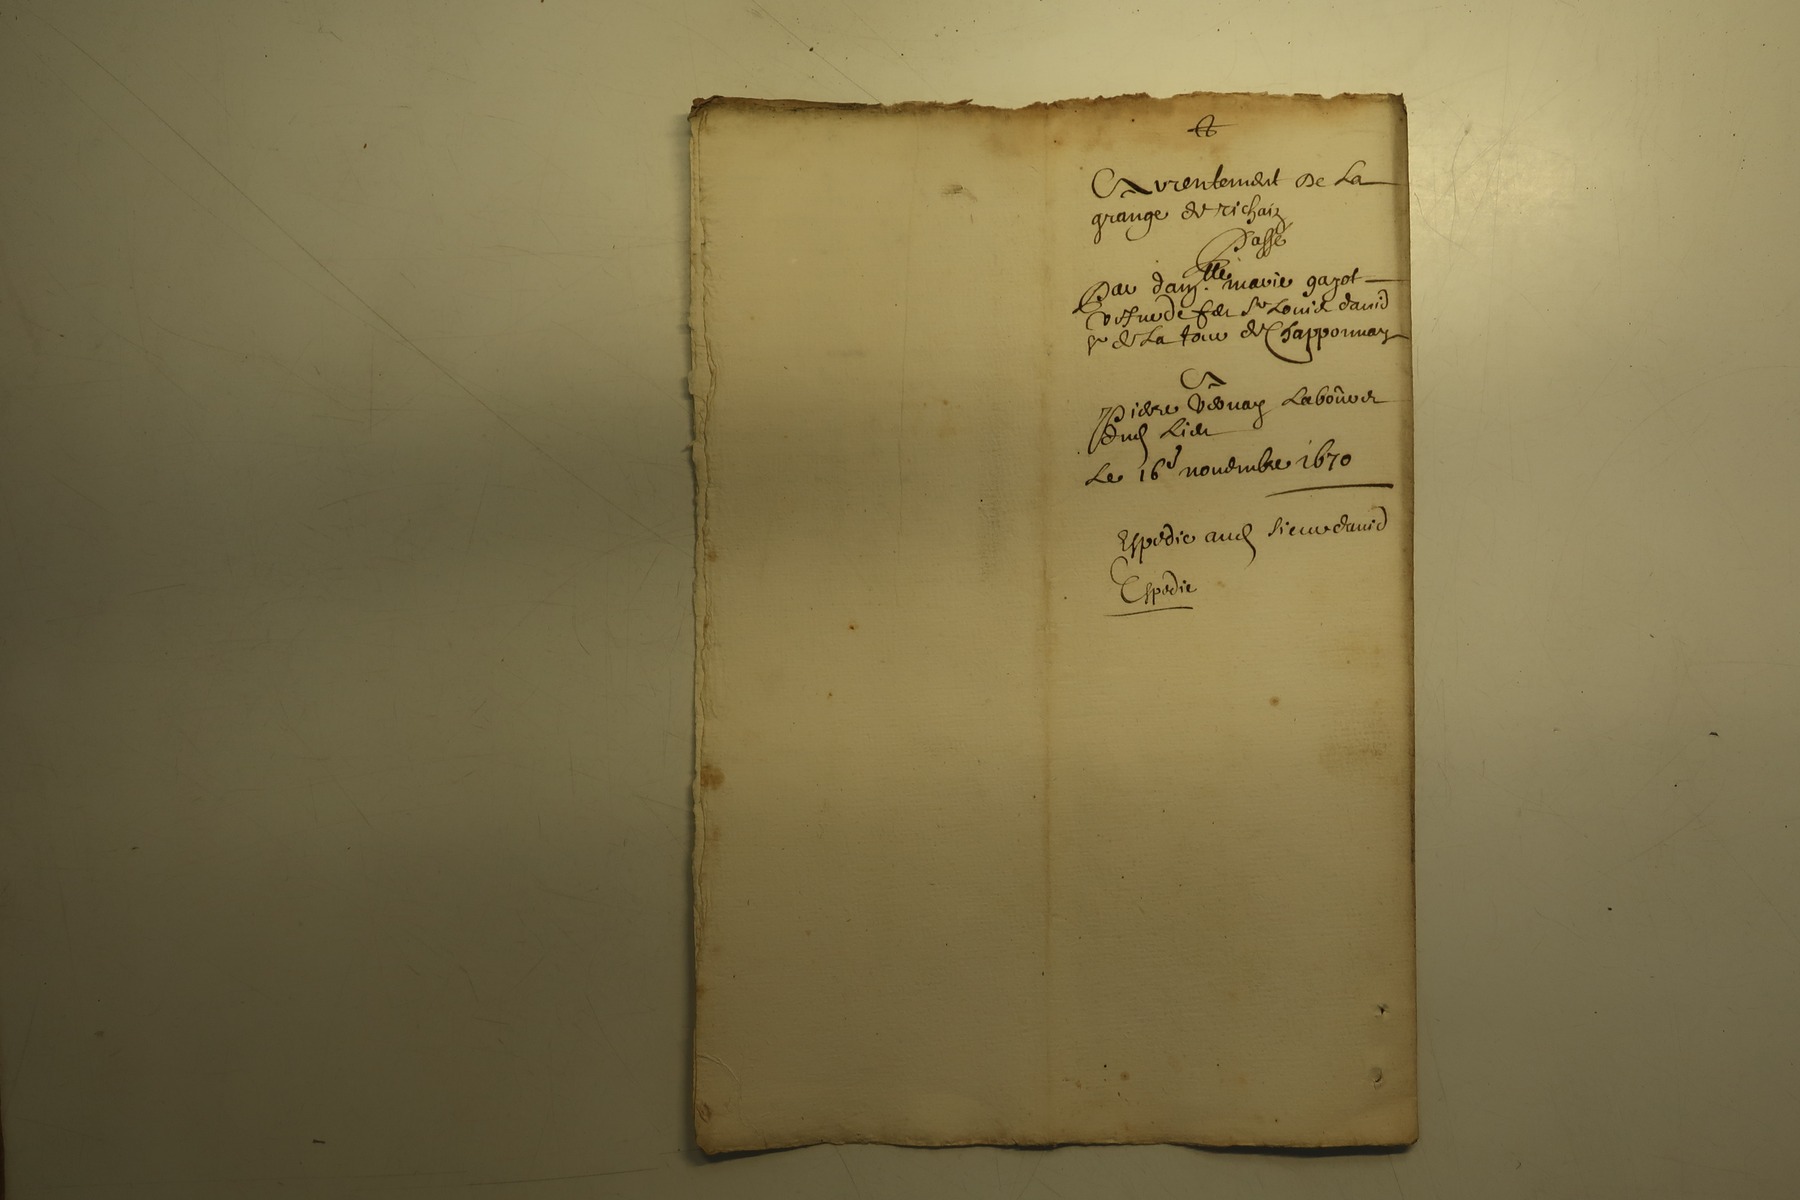 Arrentement de La
grange de richaiz
Passé
Par dam.lle marie gayot
vefve de feu Sr Louis david
Sr de La tour de Chapponnay
A
Pierre Vernay Laboureur
dud Lieu
Le 16e novembre 1670
Espedie aud sieur david
Espedie